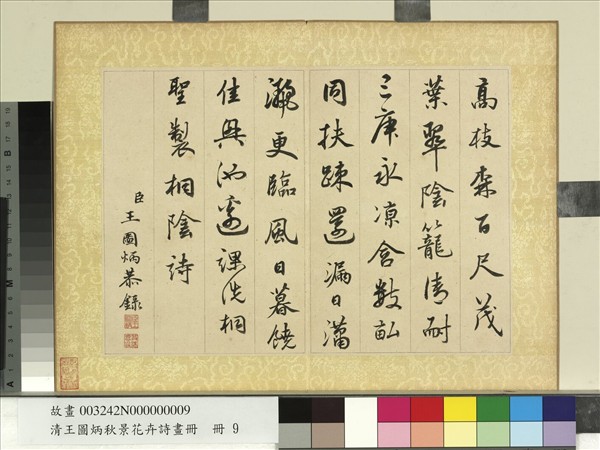 高枝森百尺茂
葉翠陰籠清耐
三庚永凉含數畝
同扶踈還漏日瀟
灑更臨風日暮饒
佳興池邊課洗桐
聖製桐陰詩
臣王圖炳恭錄
故畫 003242N000000009
清王圖炳秋景花卉詩畫冊 冊 9